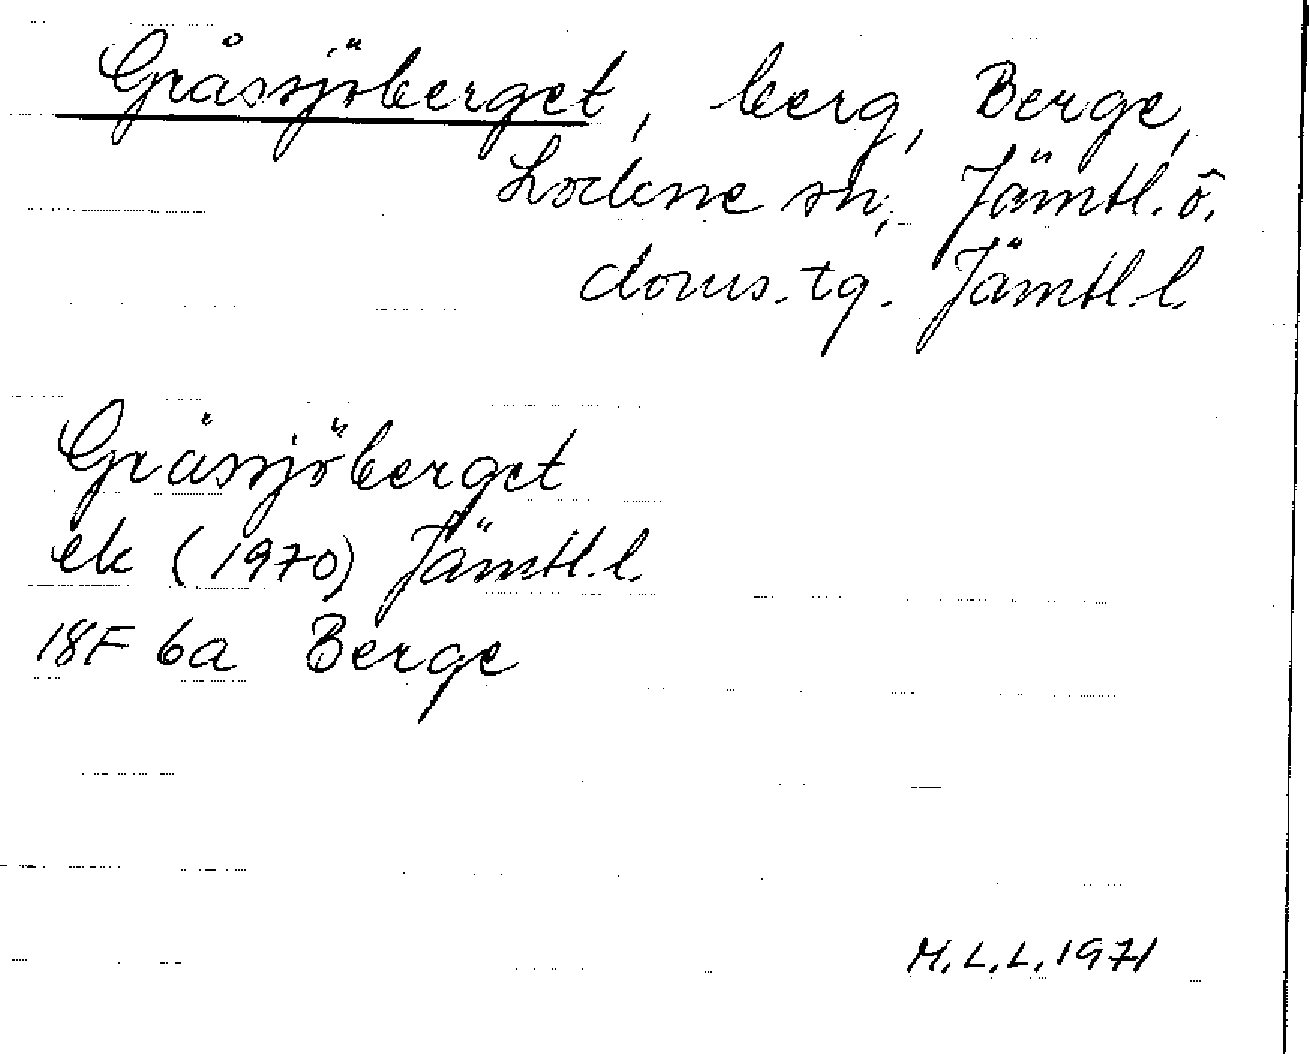 Gråssjöberget, berg, Berge,
Lockne sn, Jämtl. ö.
doms. tg. Jämtl. l.
Gråssjöberget
ek (1970) Jämtl. l.
18F 6a Berge
M.L.L. 1971